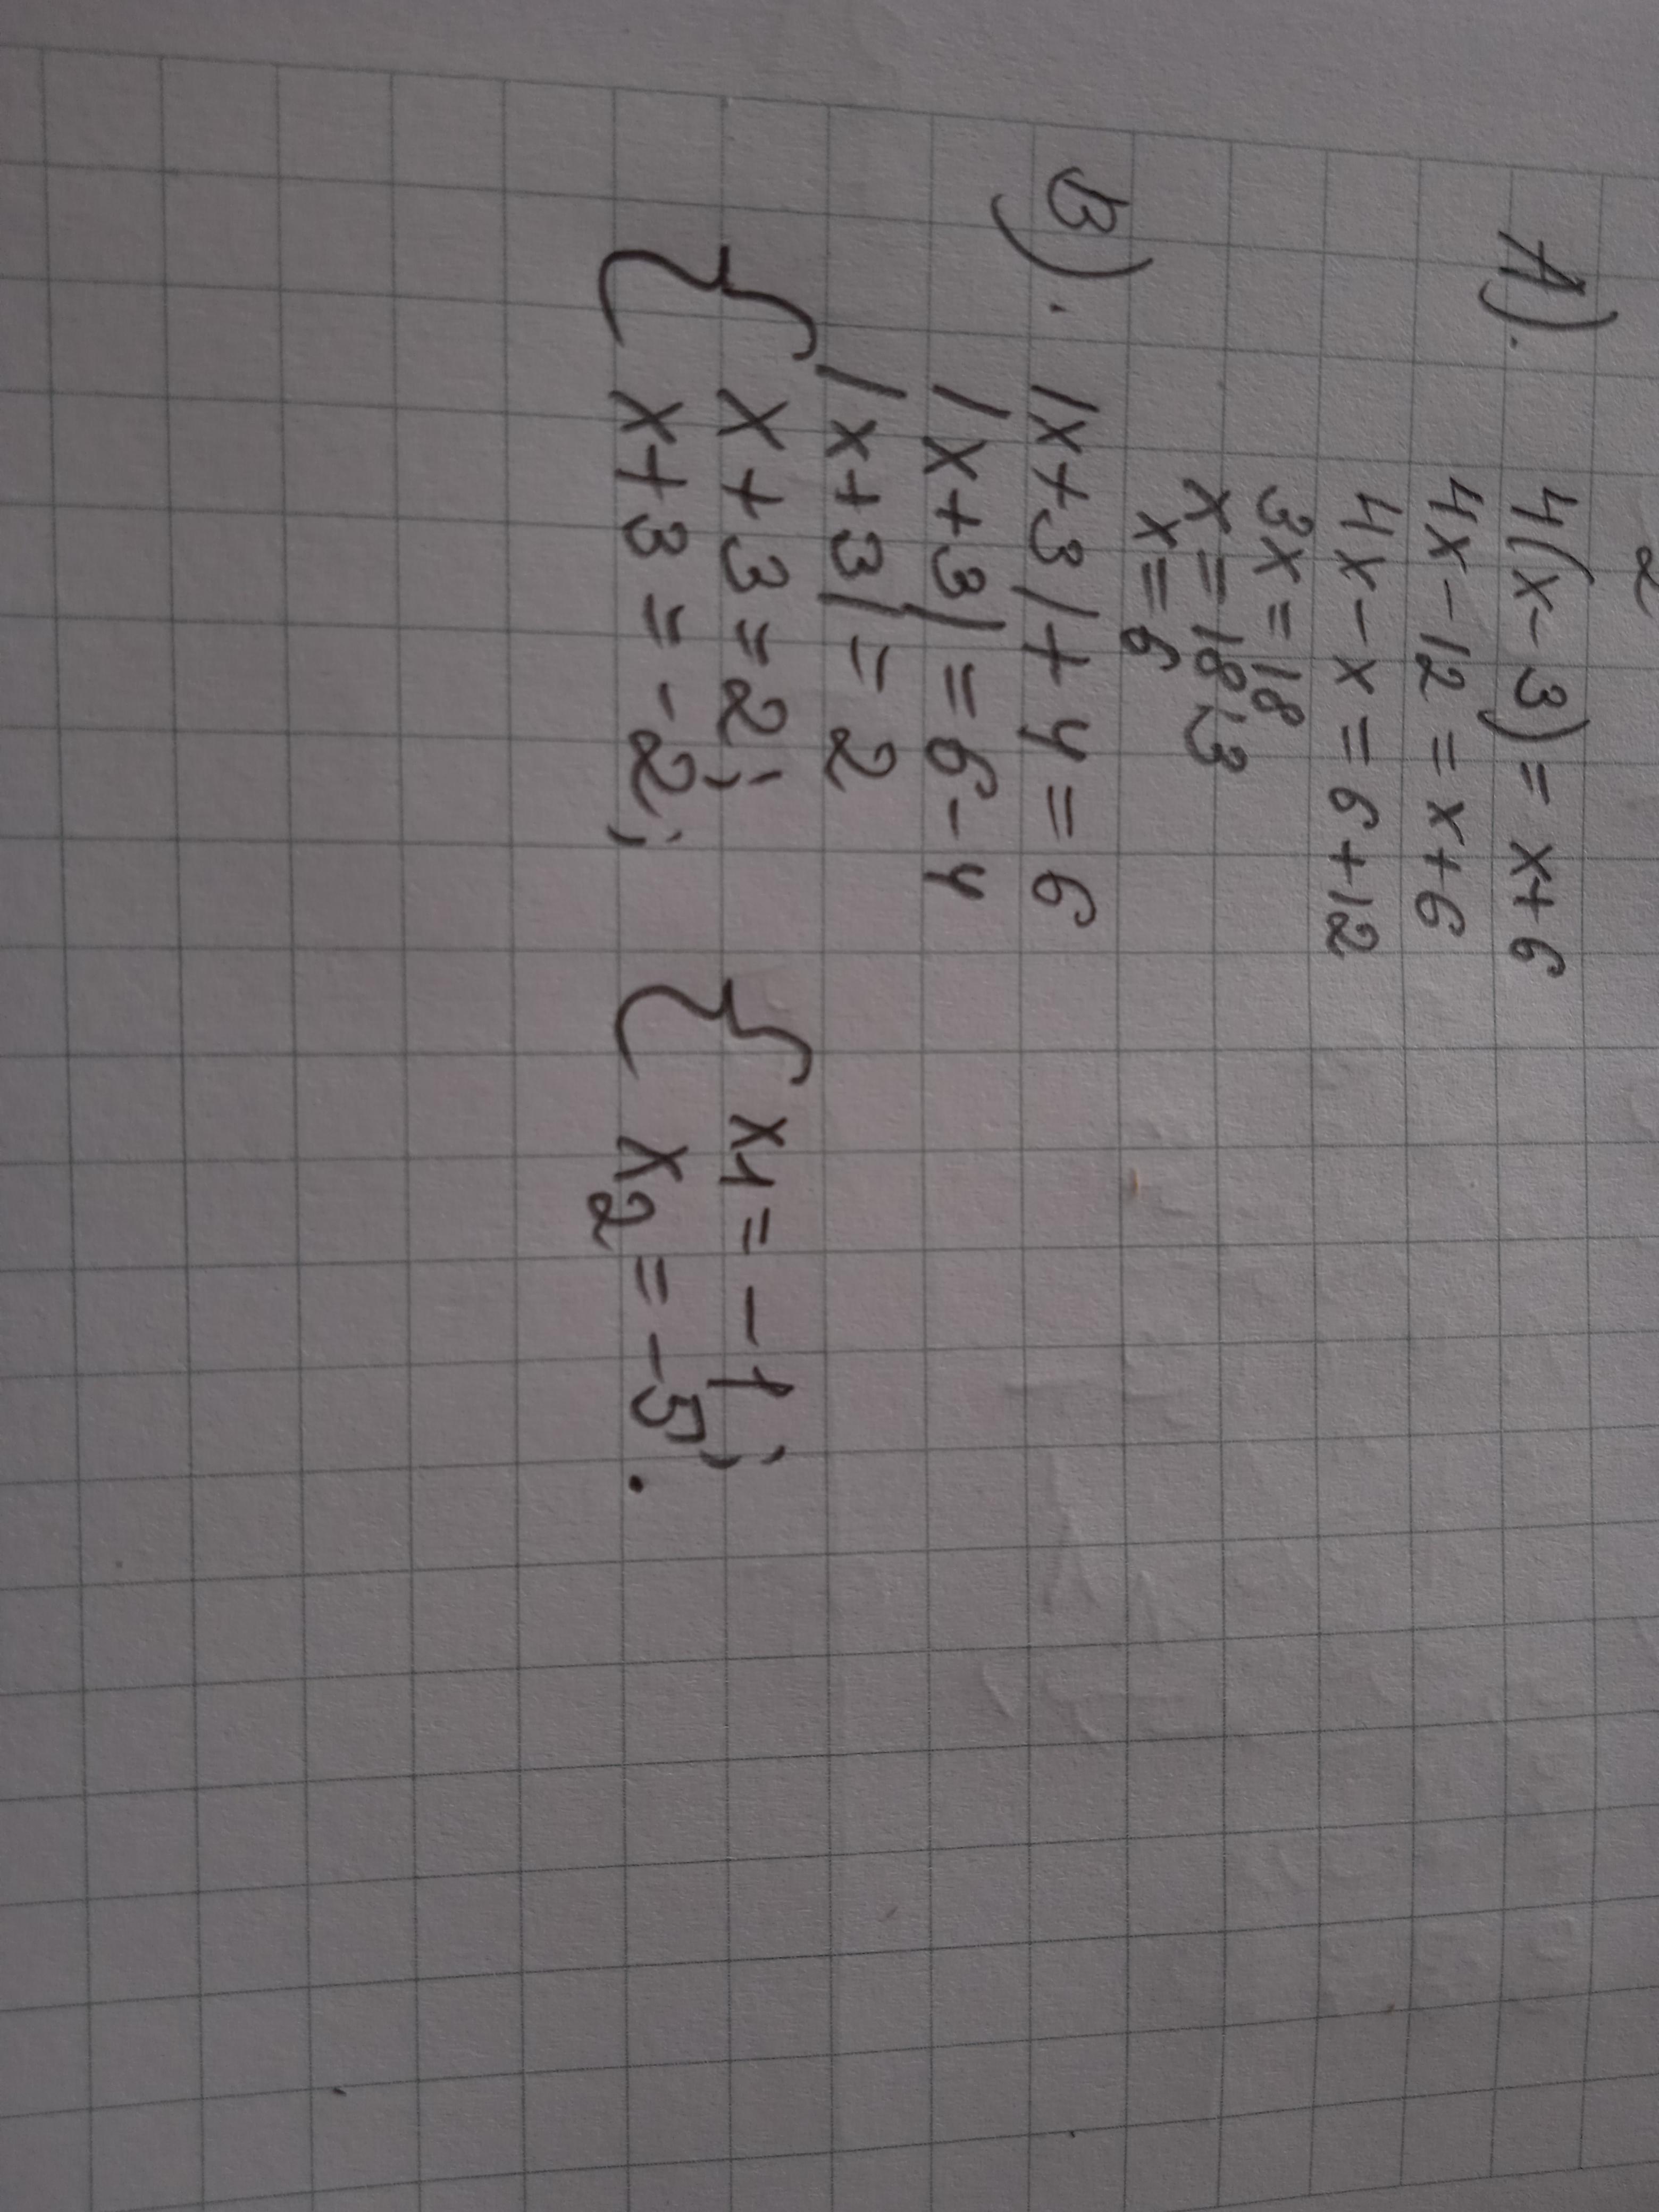 2
A). 4(x-3)=x+6
4x-12=x+6
4x-x=6+12
3x=18
x=18:3
x=6
B). |x+3|+4=6
|x+3|=6-4
|x+3|=2
{ x+3=2; { x1=-1;
x+3=-2; x2=-5.